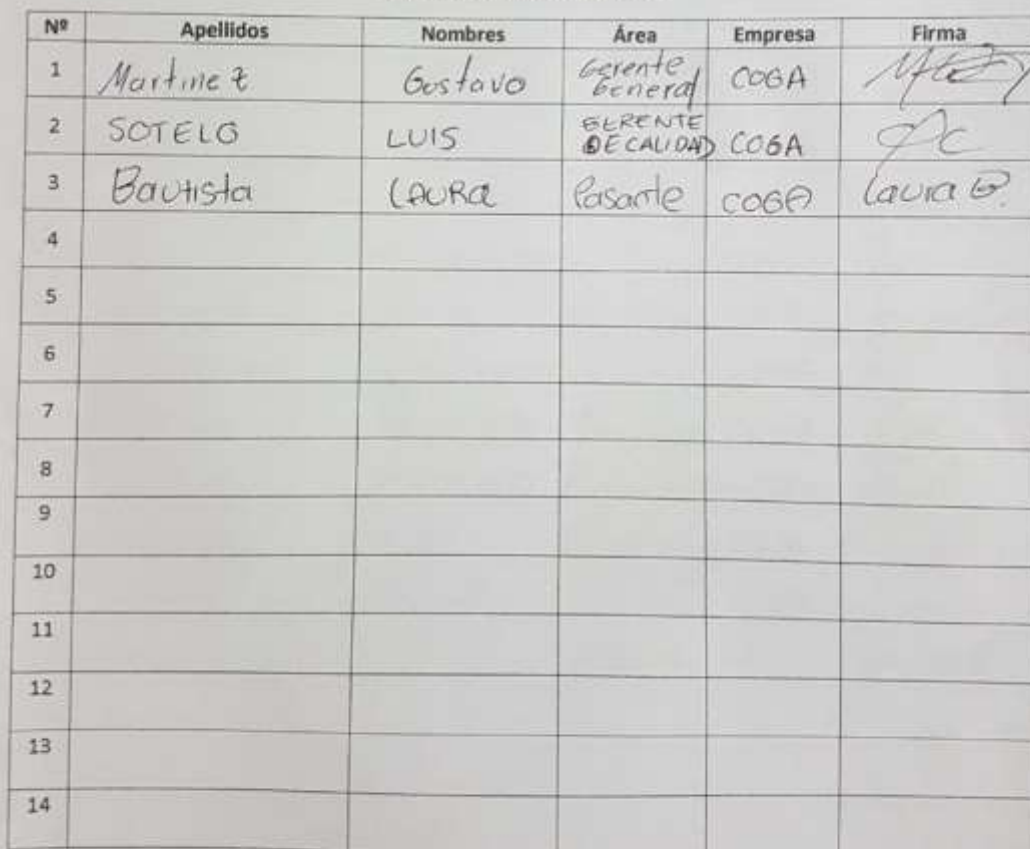 Nº Apellidos Nombres Área Empresa Firma
1 Martinez Gustavo Gerente General COGA
2 SOTELO LUIS GERENTE DE CALIDAD COGA
3 Bautista LAURA Pasante COGA Laura B.
4
5
6
7
8
9
10
11
12
13
14